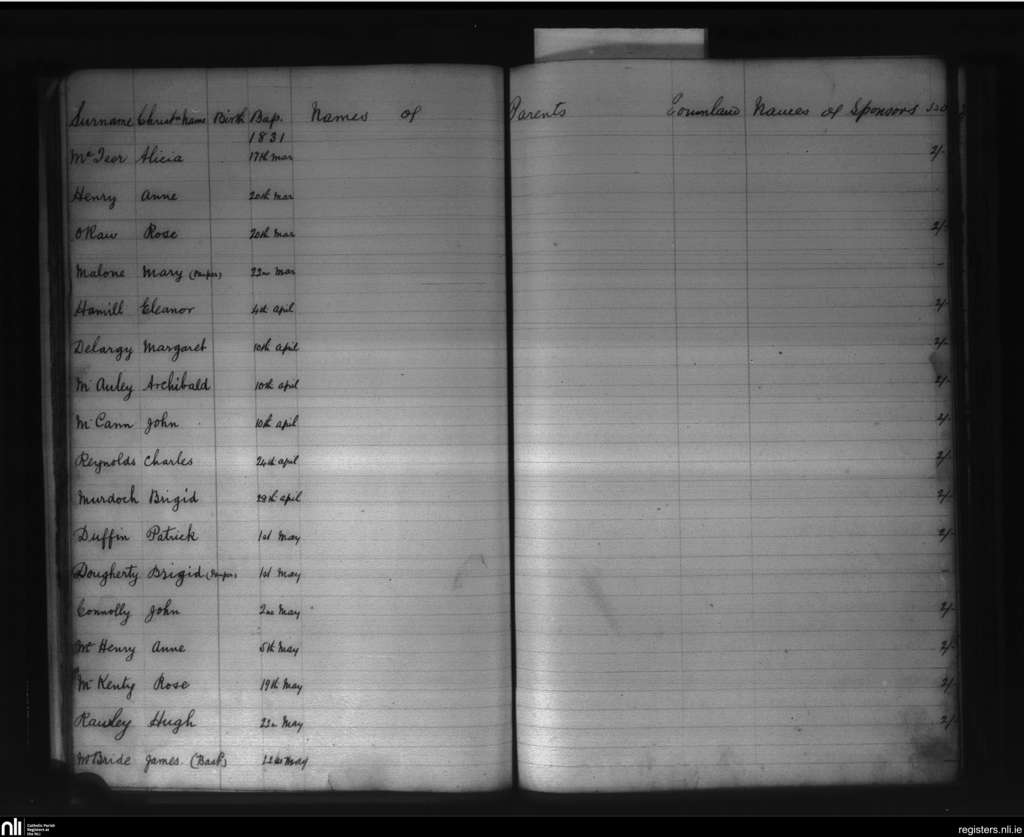 Surname Christn Name Birth Bap. Names of Parents Townland Names of Sponsors
1831
Alicia 17th Mar 2/-
Henry Anne 20th Mar
Rose 20th Mar 2/-
Malone Mary (Pauper) 22nd Mar -
Hamill Eleanor 4th April 2/-
Delargy Margaret 10th April 2/-
McAuley Archibald 10th April 2/-
McCann John 10th April 2/-
Reynolds Charles 24th April 2/-
Murdoch Brigid 29th April 2/-
Duffin Patrick 1st May 2/-
Dougherty Brigid (Pauper) 1st May -
Connolly John 2nd May 2/-
McHenry Anne 5th May 2/-
McKenty Rose 19th May 2/-
Hugh May 2/-
McBride James (Bast) May -
nli Catholic Parish
Registers at
the NLI
registers.nli.ie